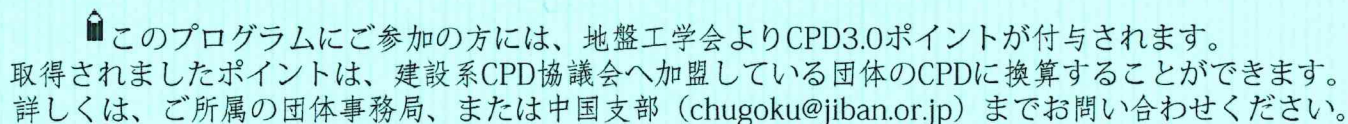 このプログラムにご参加の方には、地盤工学会よりCPD3.0ポイントが付与されます。
取得されましたポイントは、建設系CPD協議会へ加盟している団体のCPDに換算することができます。
詳しくは、ご所属の団体事務局、または中国支部（chugoku@jiban.or.jp）までお問い合わせください。